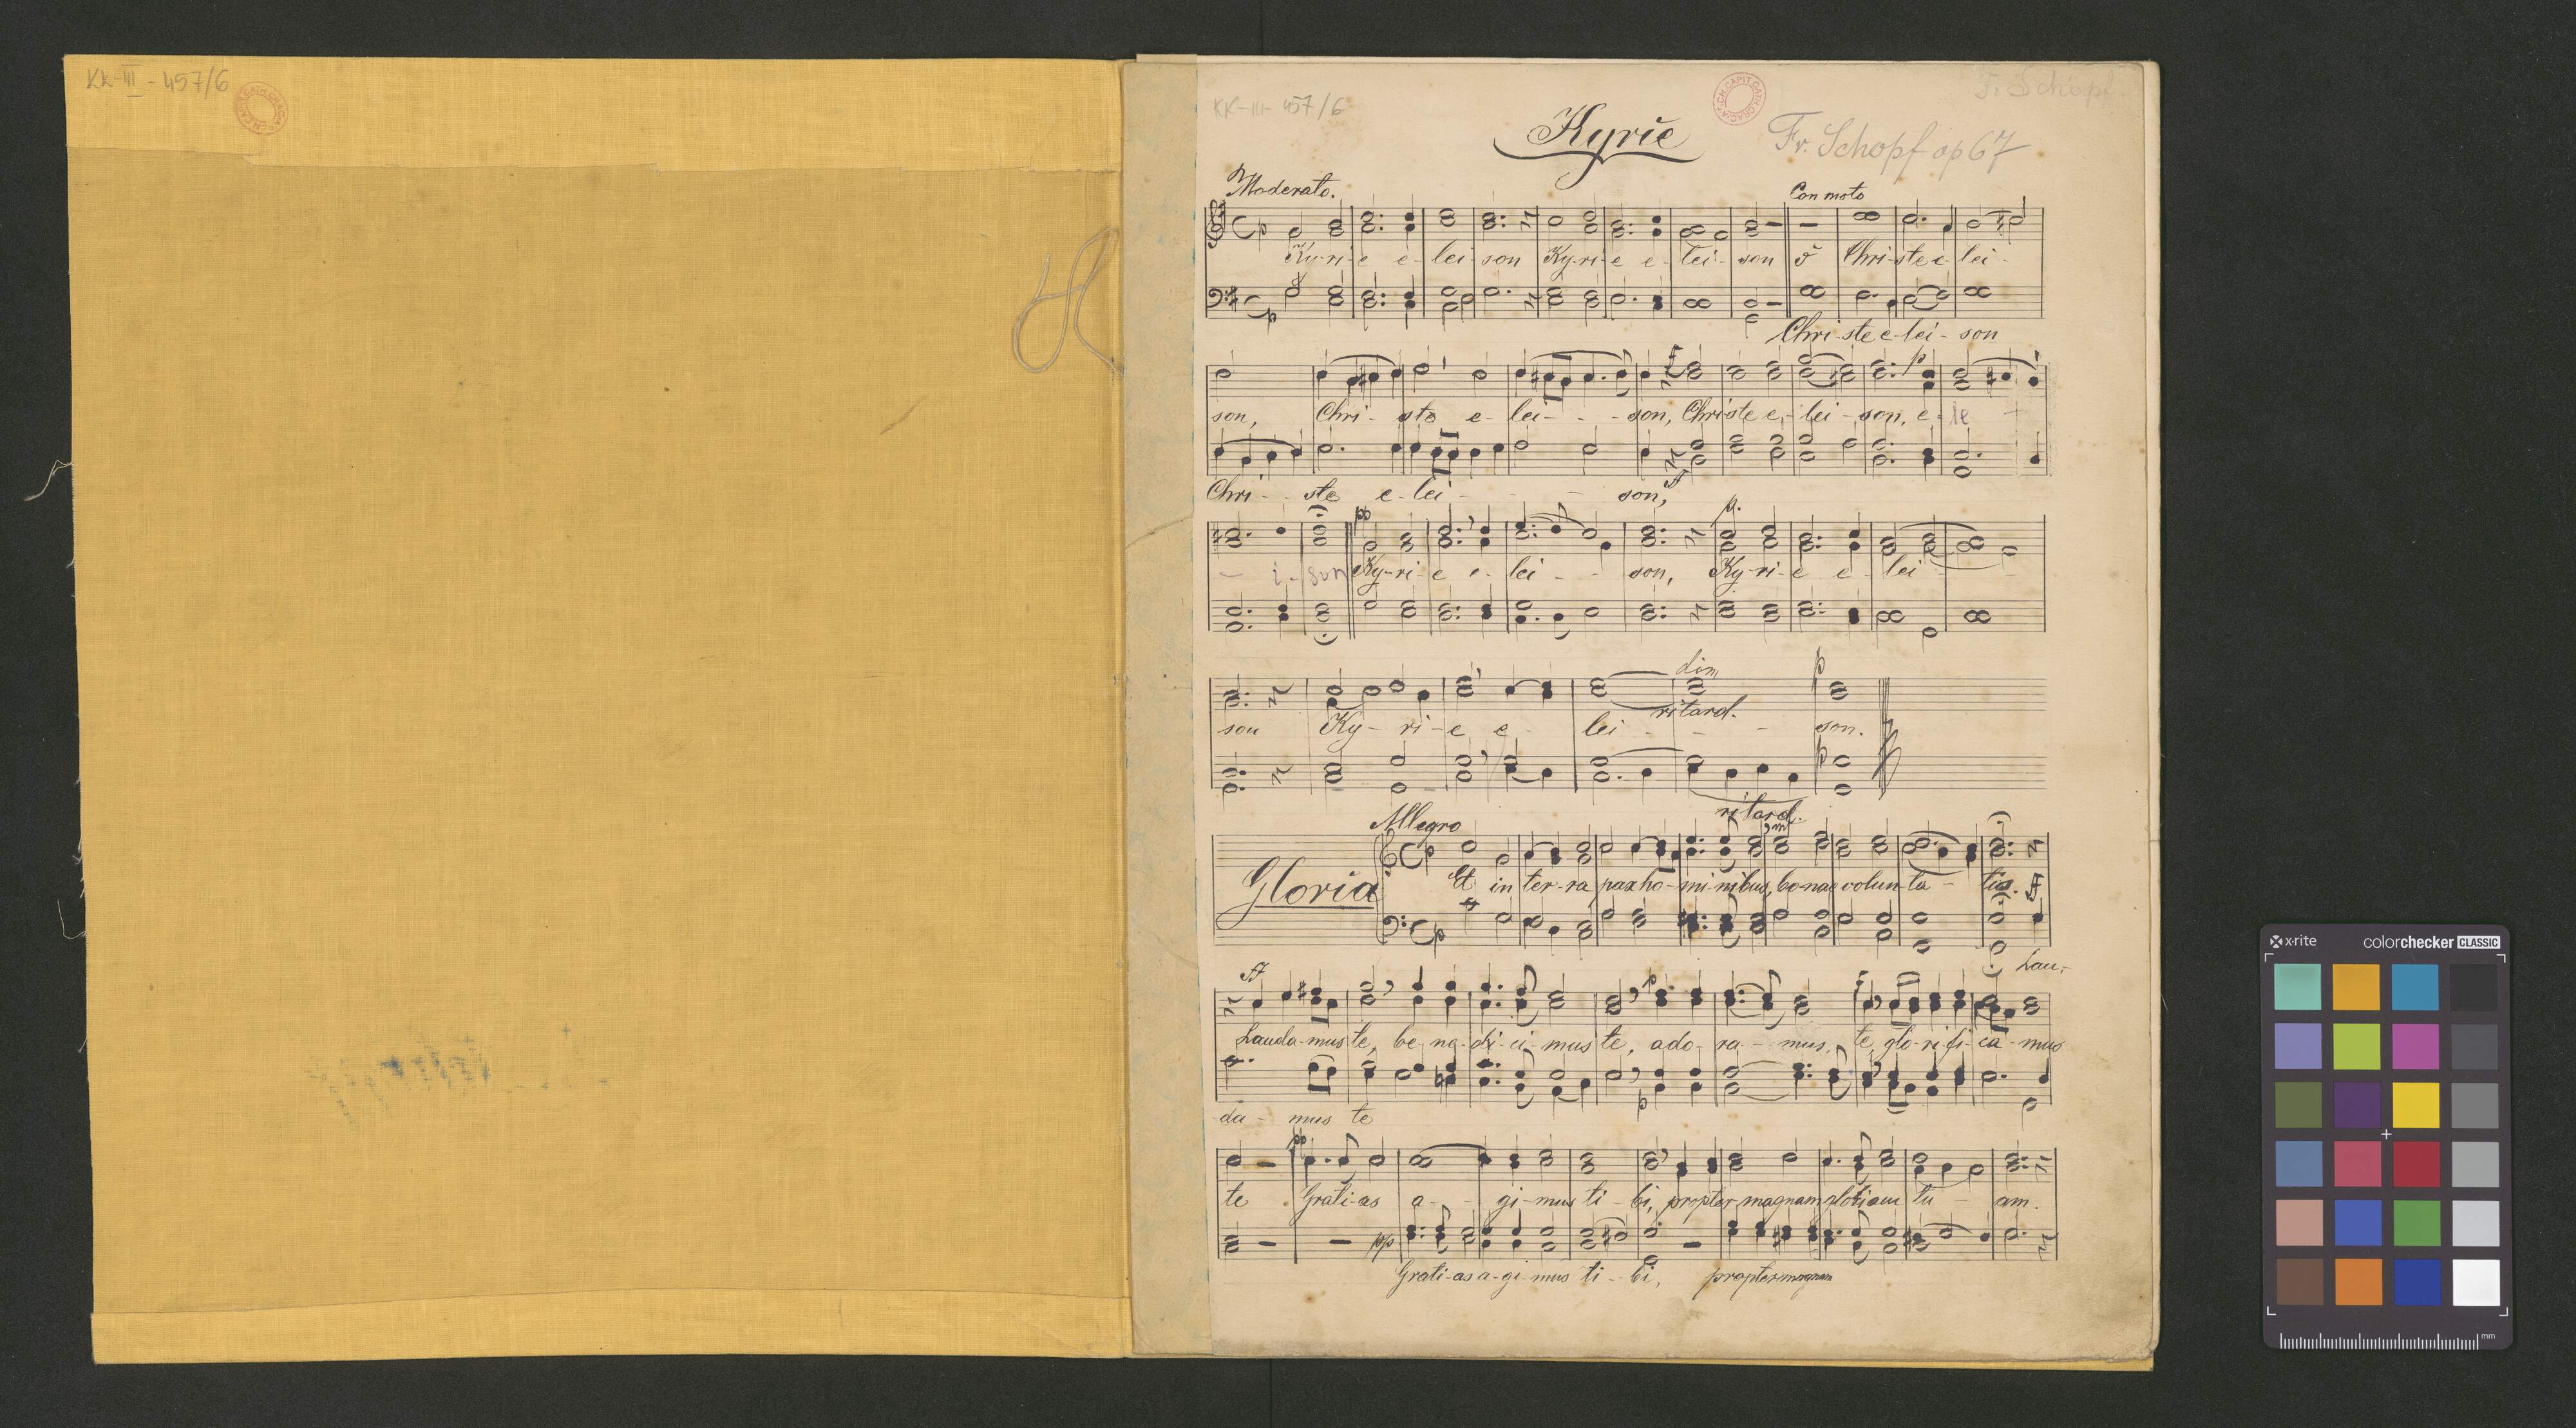 KK-III-457/6
KK-III-457/6
F. Schöpf
Kyrie
Fr. Schopf op 67
Moderato.
Con moto
Ky-ri-e e-lei-son Ky-ri-e e-lei-son Chri-ste e-lei-
Chri-ste e-lei-son
son, Chri-ste e-lei- - -son, Christe e-lei-son, e-le
Chri- -ste e-lei- - - son,
pp p.
- i-son Ky-ri-e e-lei- - son, Ky-ri-e e-lei-
dim p
ritard.
son Ky-ri-e e- lei- - - son.
p
ritard.
Allegro
Gloria
Et in ter-ra pax ho-mi-nibus, bo-nae volun-ta-tis. ff
Lau-
ff p f
Lauda-mus te, be-ne-di-ci-mus te, ado-ra-mus, te, glo-ri-fi-ca-mus
p
da-mus te
pp
te Grati-as a- - gi-mus ti-bi, propter magnam gloriam tu-am.
pp
Grati-as a-gi-mus ti-bi, propter magnam
x-rite
colorchecker CLASSIC
mm